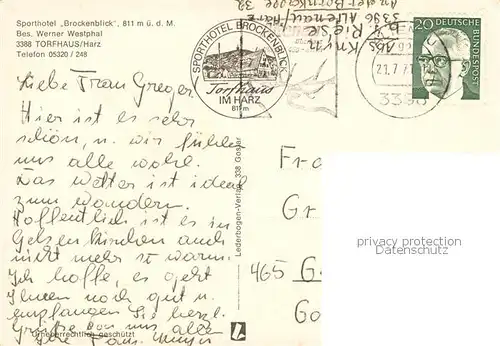 Sporthotel „Brockenblick", 811 m ü. d. M.
Bes. Werner Westphal
3388 TORFHAUS/Harz
Telefon 05320 / 248
Liebe Frau Greger
Hier ist es sehr
schön, u. wir fühlen
uns alle wohl.
Das Wetter ist ideal
zum wandern.
Hoffentlich ist es in
Gelsenkirchen auch
nicht mehr so warm.
Ich hoffe, es geht
Ihnen noch gut u.
empfangen Sie herzl.
Grüße von uns allen
Ihre Fam. Meyer
Urheberrechtlich geschützt
Lederbogen-Verlag 338 Goslar
SPORTHOTEL BROCKENBLICK
Torfhaus
IM HARZ
811m
Abs.
3396 Altenau/Harz
21.7.7
3396
20
DEUTSCHE
BUNDESPOST
Fr
Gr
465 G
Go
privacy protection
Datenschutz